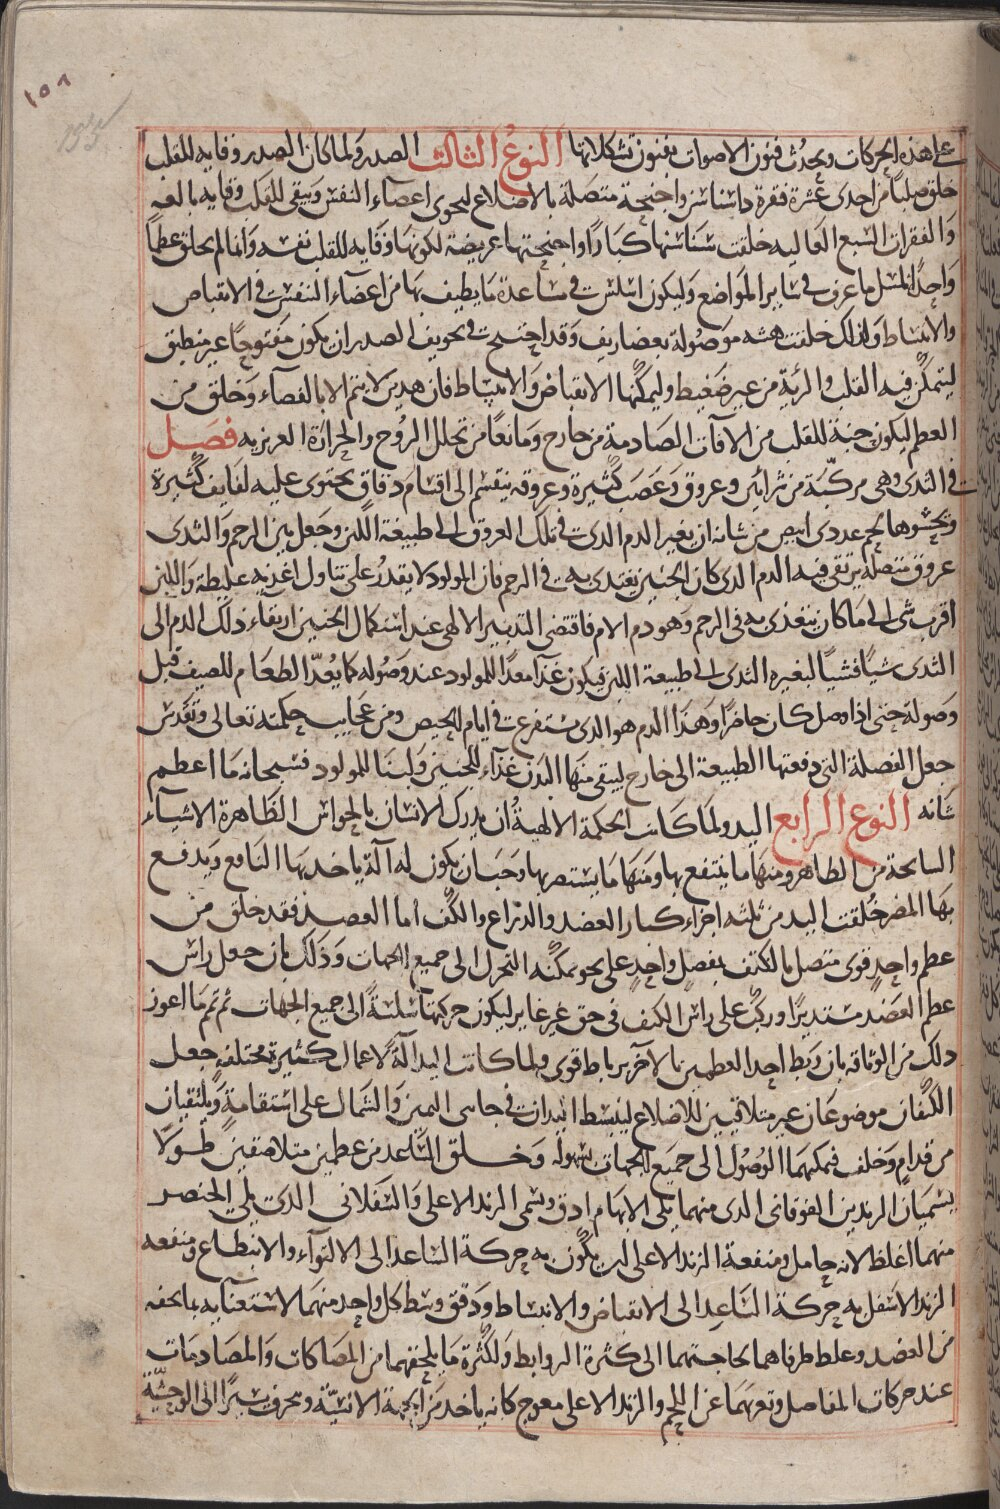 ١٥٨
على هذه الحركات ويحدث فنون الاصوات بفنون تشكلاتها النوع الثالث الصدر ولما كان الصدر وقاية للقلب
خلق صلبا من احدى عشرة فقرة ذات سناسن واجنحة متصلة بالاضلاع ليحوى اعضاء النفس ويبقى للقلب وقاية بالغة
والفقرات السبع العاليه خلقت سناسنها كبارا واجنحتها عريضة لكونها وقاية للقلب نفسه وانما لم يخلق عظما
واحدا لمثل ما عرف في ساير المواضع وليكون اسلس في مساعدة ما يطيف بها من اعضاء النفس في الانقباض
والانبساط ولذلك خلقت هشه موصولة بغضاريف وقد احتيج في تجويف الصدر ان يكون مفتوحا غير منطبق
ليتمكن فيه القلب والرئة من غير ضغيط وليمكنها الانقباض والانبساط فان هذين لا يتم الا بالفضاء وخلق من
العظم ليكون جنة للقلب من الافات الصادمة من خارج ومانعا من تحلل الروح والحرارة الغريزيه فصل
في الثدى وهى مركبة من شرائين وعروق وعصب كثيرة وعروقه ينقسم الى اقسام دقاق يحتوى عليه لفايف كثيرة
ويحشوها لحم غددى ابيض من شانه ان يغير الدم الذى في تلك العروق الى طبيعة اللبن وجعل بين الرحم والثدى
عروق متصلة يرتقى فيه الدم الذى كان الجنين يغتذى به في الرحم فان المولود لا يقدر على تناول اغذيه غليظة واللبن
اقرب شى الى ما كان يتغذى به فى الرحم وهو دم الام فاقتضى التدبير الالهى عند استكمال الجنين ارتقاء ذلك الدم الى
الثدى شيا فشيا ليغيره الثدى الى طبيعة اللبن فيكون غذا معدا للمولود عند وصوله كما يعد الطعام للضيف قبل
وصولة حتى اذا وصل كان حاضرا وهذا الدم هو الذى يستفرغ في ايام الحيض ومن عجايب حكمته تعالى وتقدس
جعل الفضلة التى دفعتها الطبيعة الى خارج ليبقى منها البدن غذاء للجنين ولبنا للمولود فسبحانه ما اعظم
شانه النوع الرابع اليد ولما كانت الحكمة الالهية ان يدرك الانسان بالحواس الظاهرة الاشياء
السانحة من الظاهر ومنها ما ينتفع بها ومنها ما يستضر بها وجب ان يكون له الة ياخذ بها النافع ويدفع
بها المضر خلقت اليد من ثلثه اجزاء كبار العضد والذراع والكف اما العضد فقد خلق من
عظم واحد قوى متصل بالكتف بفصل واحد على نحو يمكنه التحرك الى جميع الجهات وذلك بان جعل راس
عظم العضد مستديرا وركب على راس الكتف في حق غير غاير ليكون حركتها سلسة الى جميع الجهات ثم تمم ما اعوز
ذلك من الوثاقه بان ربط احد العظمين بالآخر برباط قوى ولما كانت اليد الة لاعمال كثيرة مختلف جعل
الكتفان موضوعان غير متلاقيين للاضلاع لينبسط اليدان في جانبى اليمين والشمال على استقامة ويلتقيان
من قدام وخلف فيمكنهما الوصول الى جميع الجهات بسهولة وخلق الساعد من عظمين متلاصقين طولا
يسميان الزندين الفوقانى الذى منهما يلى الابهام ادق ويسمى الزند الاعلى والسفلانى الذى يلي الخنصر
منهما اغلظ لانه حامل ومنفعة الزند الاعلى ان يكون به حركة الساعد الى الالتواء والانبطاح ومنفعه
الزند الاسفل به حركة الساعد الى الانقباض والانبساط ودقق وسط كل واحد منهما لاستغنايه بما يحفه
من العضد وغلظ طرفاهما لحاجتهما الى كثرة الروابط ولكثرة ما يلحقهما من المصاكات والمصادمات
عند حركات المفاصل وتعريهما عن اللحم والزند الاعلى معوج كانه ياخذ من الجهة الانسيّة ويحرف يسيرا الى الوحشيّة